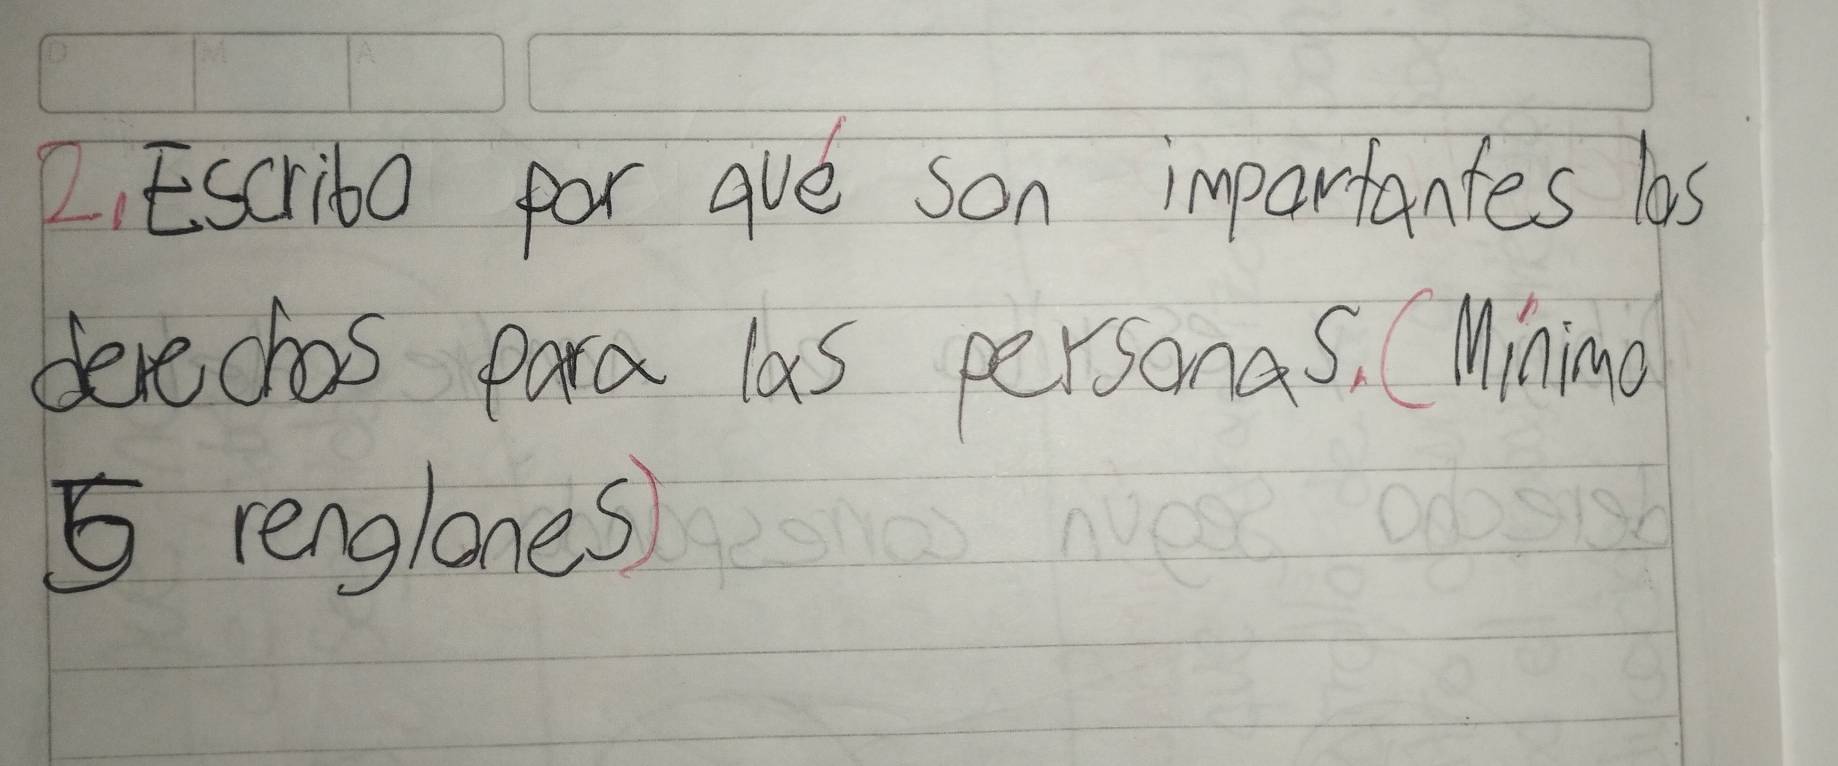 D M A
2. Escribo por qué son importantes los
derechos para las personas. (Mínimo
5 renglones)